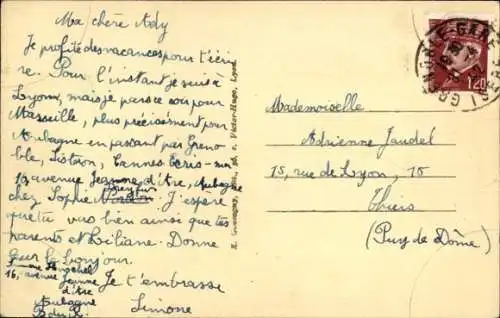 Ma chère Ady
Je profite des vacances pour t'écri-
re. Pour l'instant je suis à
Lyon, mais je pars ce soir pour
Marseille, plus précisément pour
Aubagne en passant par Greno-
ble, Sisteron, Cannes Ecris-moi
16 avenue Jeanne d'Arc, Aubagne
chez Sophie
J'espère
que tu vas bien ainsi que tes
parents et Liliane. Donne
leur le bonjour.
16, avenue Jeanne
d'Arc
Aubagne
B du R.
Je t'embrasse
Simone
Mademoiselle
Adrienne Jaudel
15, rue de Lyon, 15
Thiers
(Puy de Dôme)
Victor-Hugo, Lyon
1,20
GRENOBLE-GARE
ISERE